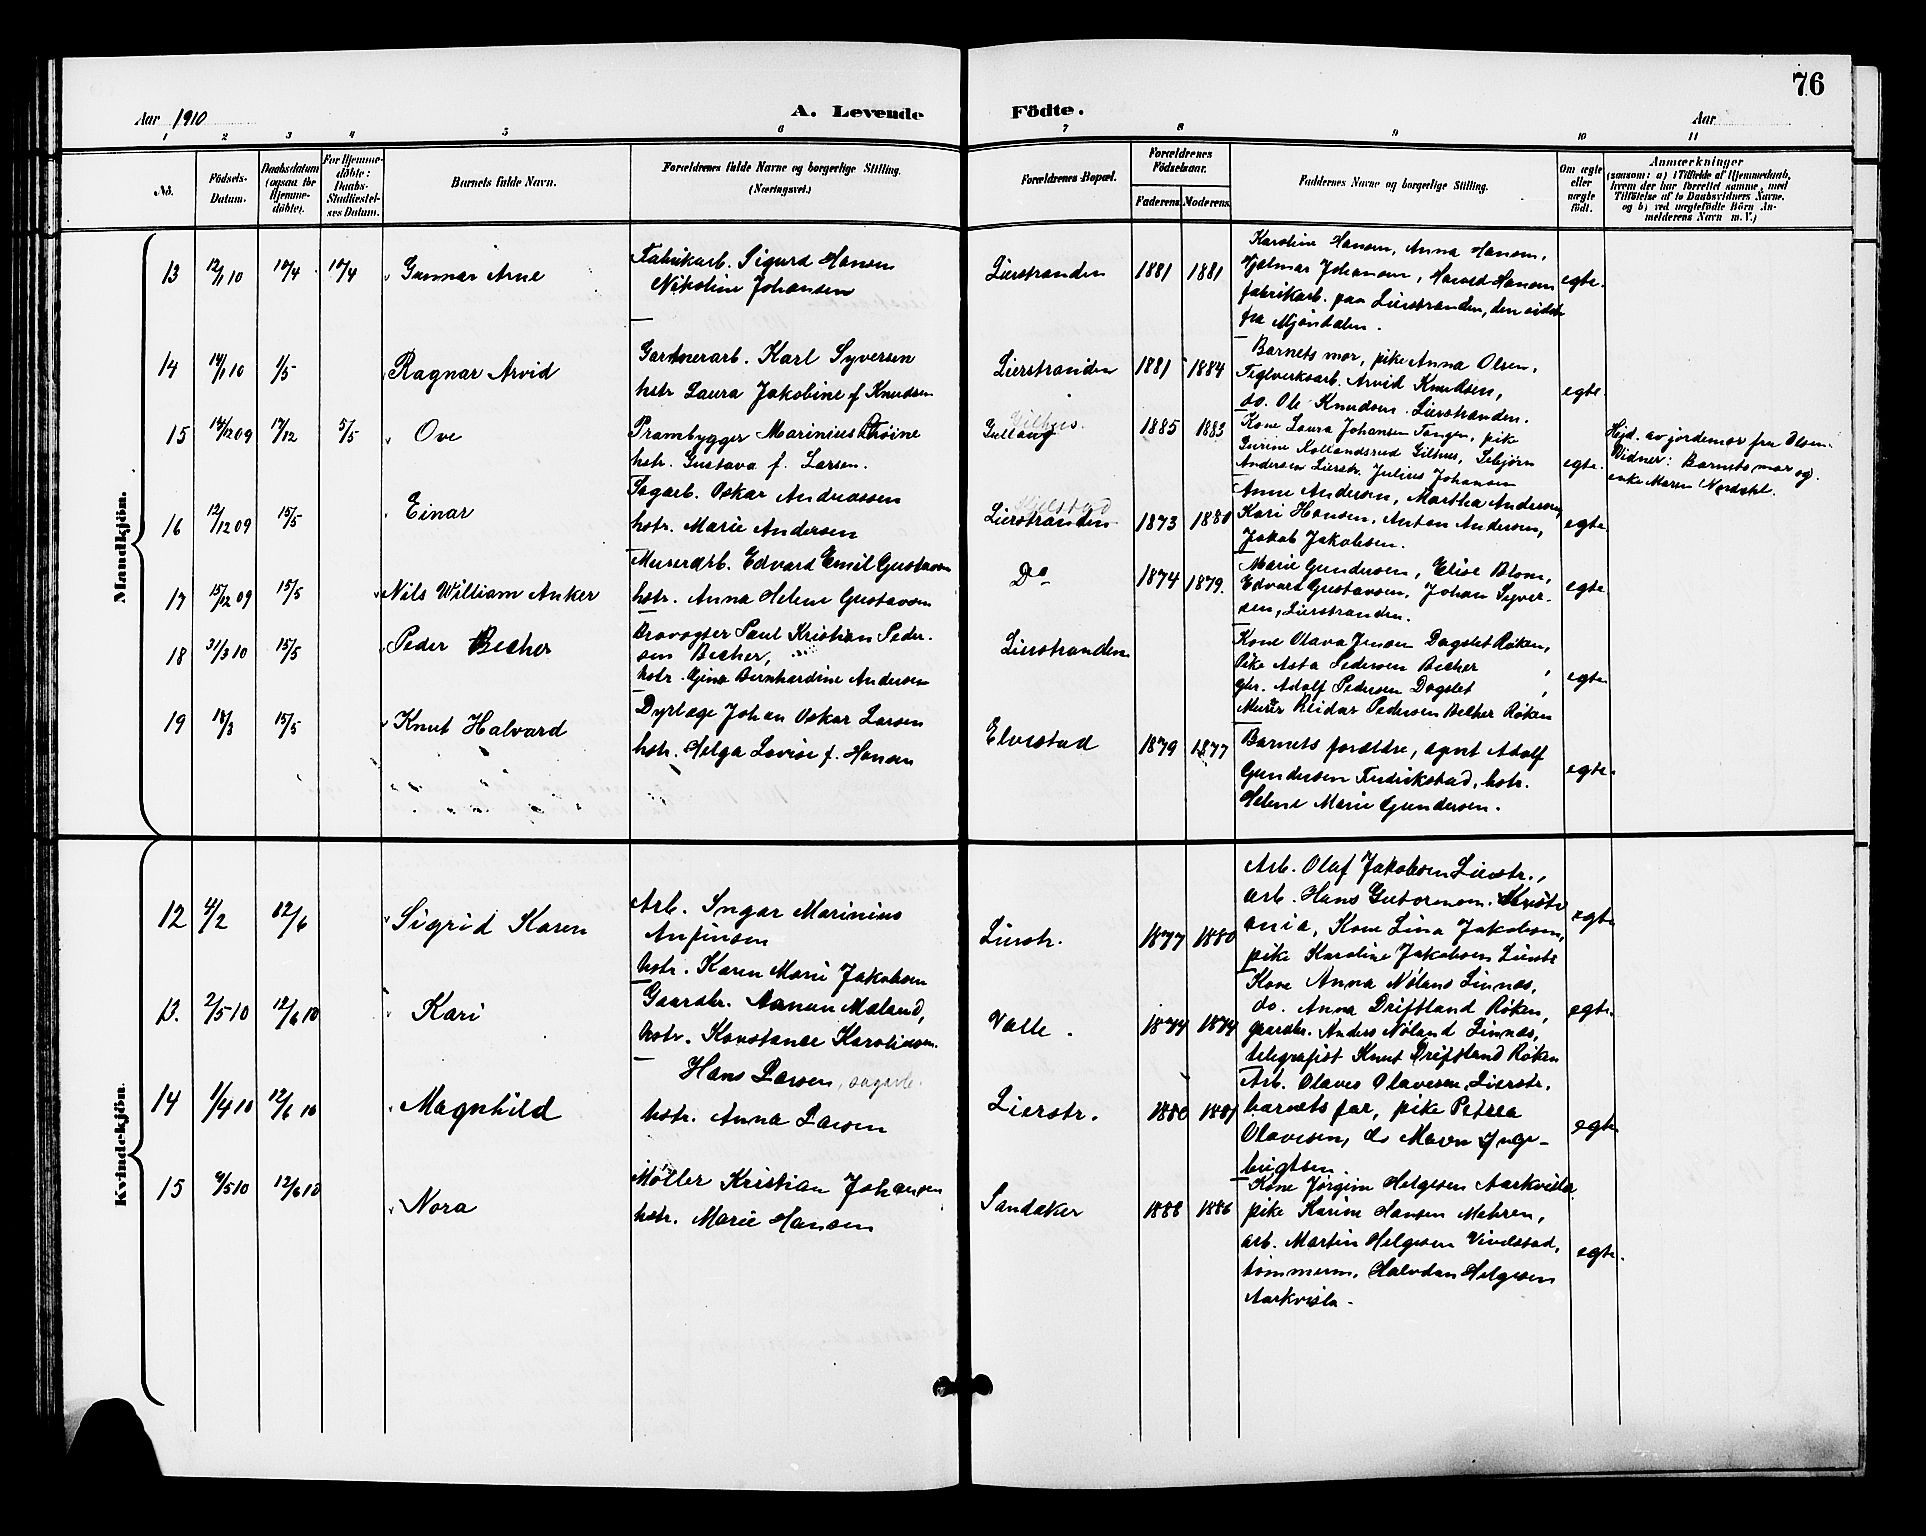 76
Aar 1910
A. Levende
Födte.
Aar
1 2 3 4 5 6 7 8 9 10 11
No.
Födsels-
Datum.
Daabsdatum
(ogsaa for
Hjemme-
döbte).
For Hjemme-
döbte:
Daabs-
Stadfæstel-
ses Datum.
Barnets fulde Navn.
Forældrenes fulde Navne og borgerlige Stilling.
(Næringsvei.)
Forældrenes Bopæl.
Forældrenes
Födselsaar.
Faderens
Moderens.
Faddernes Navne og borgerlige Stilling.
Om ægte
eller
uægte
födt.
Anmærkninger
(saasom: a) i Tilfælde af Hjemmedaab,
hvem der har forrettet samme, med
Tilföielse af to Daabsvidners Navne.
og b) ved uægtefödte Börn An-
melderens Navn m. V.)
Mandkjön.
13 12/1 10 10/4 10/4 Gunnar Arne
Fabrikarb. Sigurd Hansen
Nikoline Johansen
Lierstranden 1881 1881
Karoline Hansen, Anna Hansen,
Hjalmar Johansen, Harald Hansen
fabrikarb. paa Lierstranden, den sidste
fra Mjøndalen.
egte.
14 14/1 10 1/5 Ragnar Arvid
Gartnerarb. Karl Syversen
hstr Laura Jakobine f Knudsen
Lierstranden 1881 1884
Barnets mor, pike Anna Olsen,
Teglverksarb. Arvid Knudsen,
do. Ole Knudsen. Lierstranden.
egte
15 14/12 09 17/12 5/5 Ove
Prambygger Marinius
hstr. Gustava f. Larsen.
Gullaug 1885 1883
Kone Laura Johansen Tangen, pike
Gurine Kollandsrud Giltnes,
Andersen Lierstr. Julius Johansen
egte.
Hjd. av jordemor fru Olsen.
Vidner: Barnets mor og
enke Maren Nordahl.
16 12/12 09 15/5 Einar
Sagarb. Oskar Andreassen
hstr. Marie Andersen
Lierstranden 1873 1880
Anne Andersen, Martha Andersen,
Kari Hansen, Anton Andersen,
Jakob Jakobsen.
egte
17 15/12 09 15/5 Nils William Anker
Murerarb. Edvard Emil Gustavsen
hstr. Anna Helene Gustavsen
Do 1874 1879.
Marie Gundersen, Elise Blom,
Edvard Gustavsen, Johan Syver-
sen, Lierstranden.
egte
18 31/3 10 15/5 Peder Becher
Brovogter Paul Kristian Peder-
sen Becher,
hstr. Gina Bernhardine Andersen
Lierstranden
Kone Olava Jensen Dagslet Røken,
Pike Asta Pedersen Becher
gbr. Adolf Pedersen Dagslet
Murer Reidar Pedersen Becher Røken
egte
19 18/3 15/5 Knut Halvard
Dyrlæge Johan Oskar Larsen
hstr. Helga Lovise f. Hansen
Elvestad 1879 1877
Barnets forældre, agent Adolf
Gundersen Fredrikstad, hstr.
Helene Marie Gundersen.
egte.
Kvindekjön.
12 4/2 12/6 Sigrid Karen
Arb. Ingar Marinius
Anfinsen
hstr. Karen Marie Jakobsen
Lierstr. 1877 1880
Arb. Olaf Jakobsen Lierstr.,
arb. Hans Gutormsen. Kristi-
ania, Kone Lina Jakobsen,
pike Karoline Jakobsen Lierstr
egte
13. 2/5 10 12/6 10 Kari
Gaardbr. Aanan Maland,
hstr. Konstanse Karolisen.
Valle. 1874 1874
Kone Anna Nøland Linnes,
do. Anna Driftland Røken,
gaardbr. Anders Nøland Linnes,
telegrafist Knut Driftland Røken
egte.
14 1/4 10 12/6 10 Magnhild
Hans Larsen, sagarb.
hstr. Anna Larsen
Lierstr. 1880 1881
Arb. Olaves Olavesen, Lierstr.
barnets far, pike Petrea
Olavesen, do Maren Inge-
brigtsen.
egte.
15 9/5 10 12/6 10 Nora
Møller Kristian Johansen
hstr. Marie Hansen
Sandaker 1888 1886
Kone Jørgine Helgesen Aarkvisla
pike Karine Hansen Mehren,
arb. Martin Helgesen Vivelstad,
tømmerm. Halvdan Helgesen
Aarkvisla.
egte.